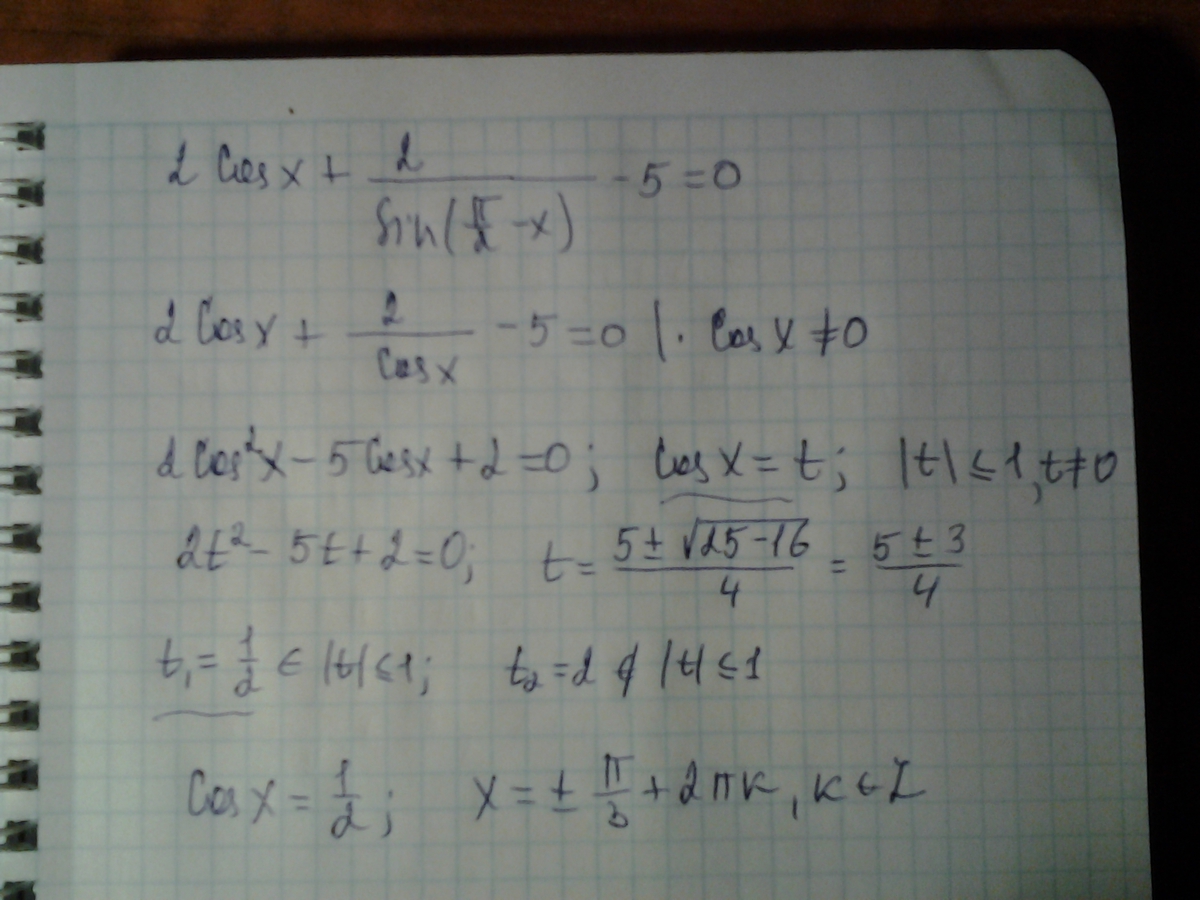 2 Cos x + 2/sin(π/2 - x) - 5 = 0
2 Cos x + 2/Cos x - 5 = 0 | · Cos x ≠ 0
2 Cos²x - 5 Cos x + 2 = 0; Cos x = t; |t| ≤ 1, t ≠ 0
2t² - 5t + 2 = 0; t = (5 ± √(25-16))/4 = (5 ± 3)/4
t₁ = 1/2 ∈ |t| ≤ 1; t₂ = 2 ∉ |t| ≤ 1
Cos x = 1/2; x = ± π/3 + 2πк, к ∈ Z